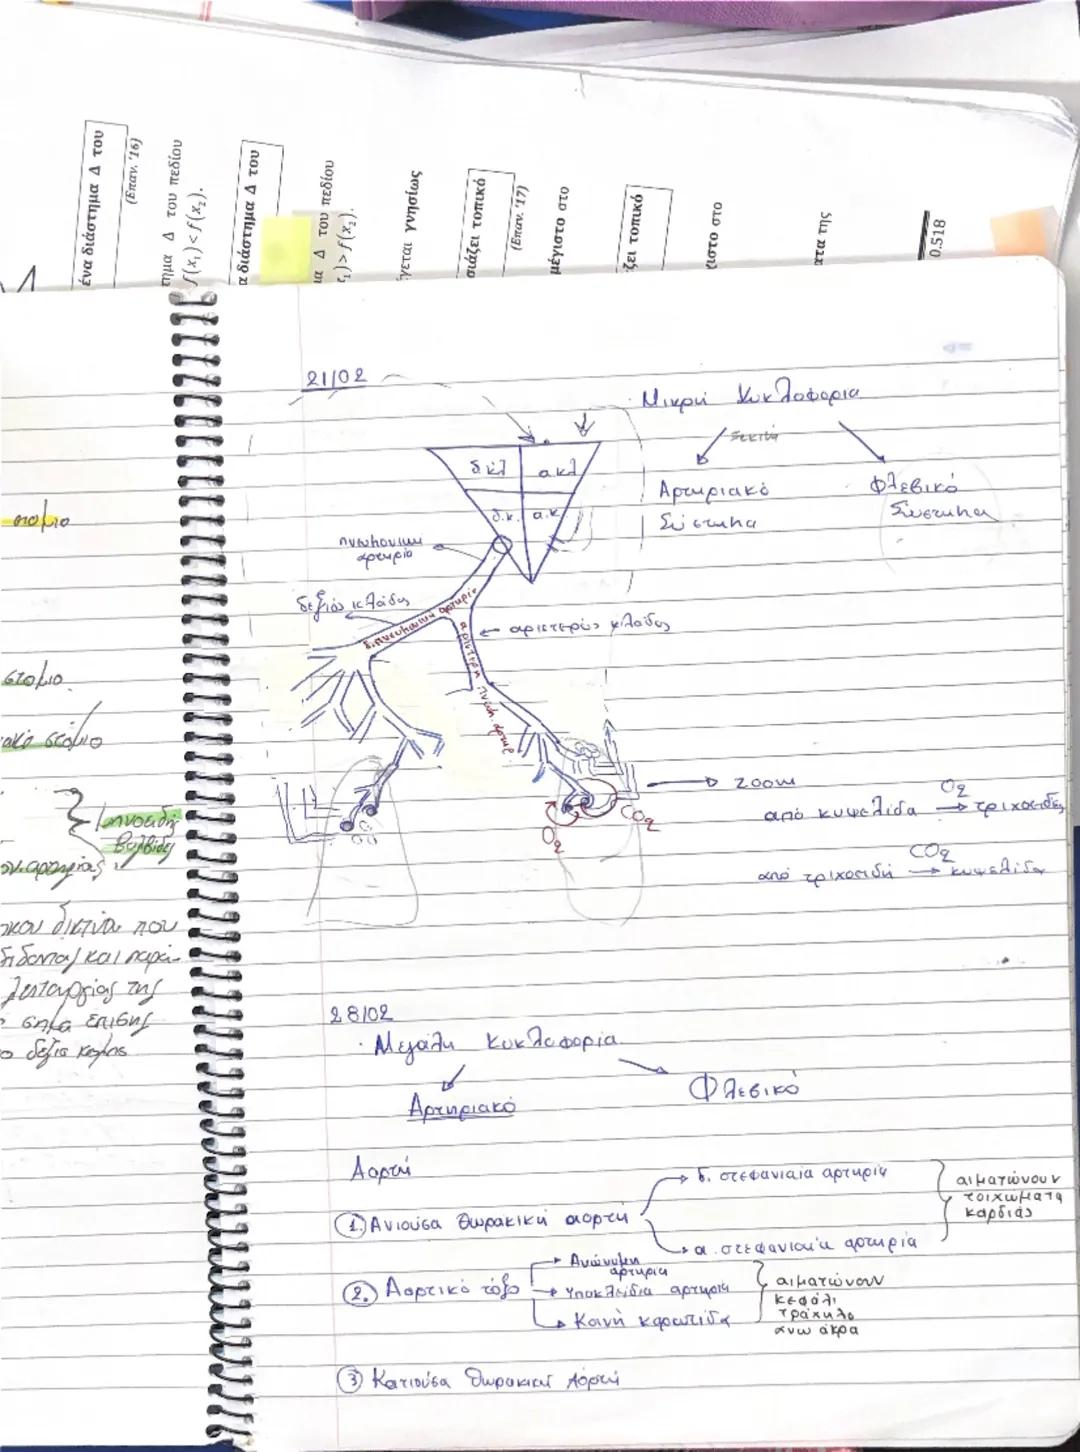 ένα διάστημα Δ του
(Επαν. '16)
τημα Δ του πεδίου
f(x₁) < f(x₂).
α διάστημα Δ του
ια Δ του πεδίου
ς₁) > f(x₂).
γεται γνησίως
σιάζει τοπικό
(Επαν. '17)
μέγιστο στο
ζει τοπικό
ιστο στο
ατα της
0.518
στόμιο
στόμιο
ακό στόμιο
μηνοειδής
βαλβίδες
δίκτυα που
δίδονται και παρα-
λειτουργίας της
σήμα επίσης
ο δεξιά
21/02
Μικρή Κυκλοφορία
Αρτηριακό
Σύστημα
Φλεβικό
Σύστημα
δ κλ
α κλ
δ.κ.
α.κ
πνευμονική
αρτηρία
δεξιός κλάδος
δ. πνευμονική αρτηρία
αριστερός κλάδος
αριστερή πνευμ. αρτηρ.
O₂
CO₂
zoom
από κυψελίδα O₂ → τριχοειδές
από τριχοειδή CO₂ → κυψελίδα
28/02
· Μεγάλη Κυκλοφορία
Αρτηριακό
Φλεβικό
Αορτή
1. Ανιούσα θωρακική αορτή
δ. στεφανιαία αρτηρία
α. στεφανιαία αρτηρία
αιματώνουν
τοιχώματα
καρδιάς
2. Αορτικό τόξο
Ανώνυμη
αρτηρία
Υποκλείδια αρτηρία
Κοινή καρωτίδα
αιματώνουν
κεφάλι
τράχηλο
άνω άκρα
3 Κατιούσα θωρακική Αορτή